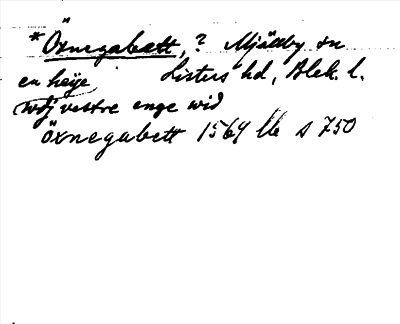 *Öxnegabett, ? Mjällby sn
en heije Listers hd, Blek. l.
wdj vestre enge wid
öxnegabett 1569 s 750